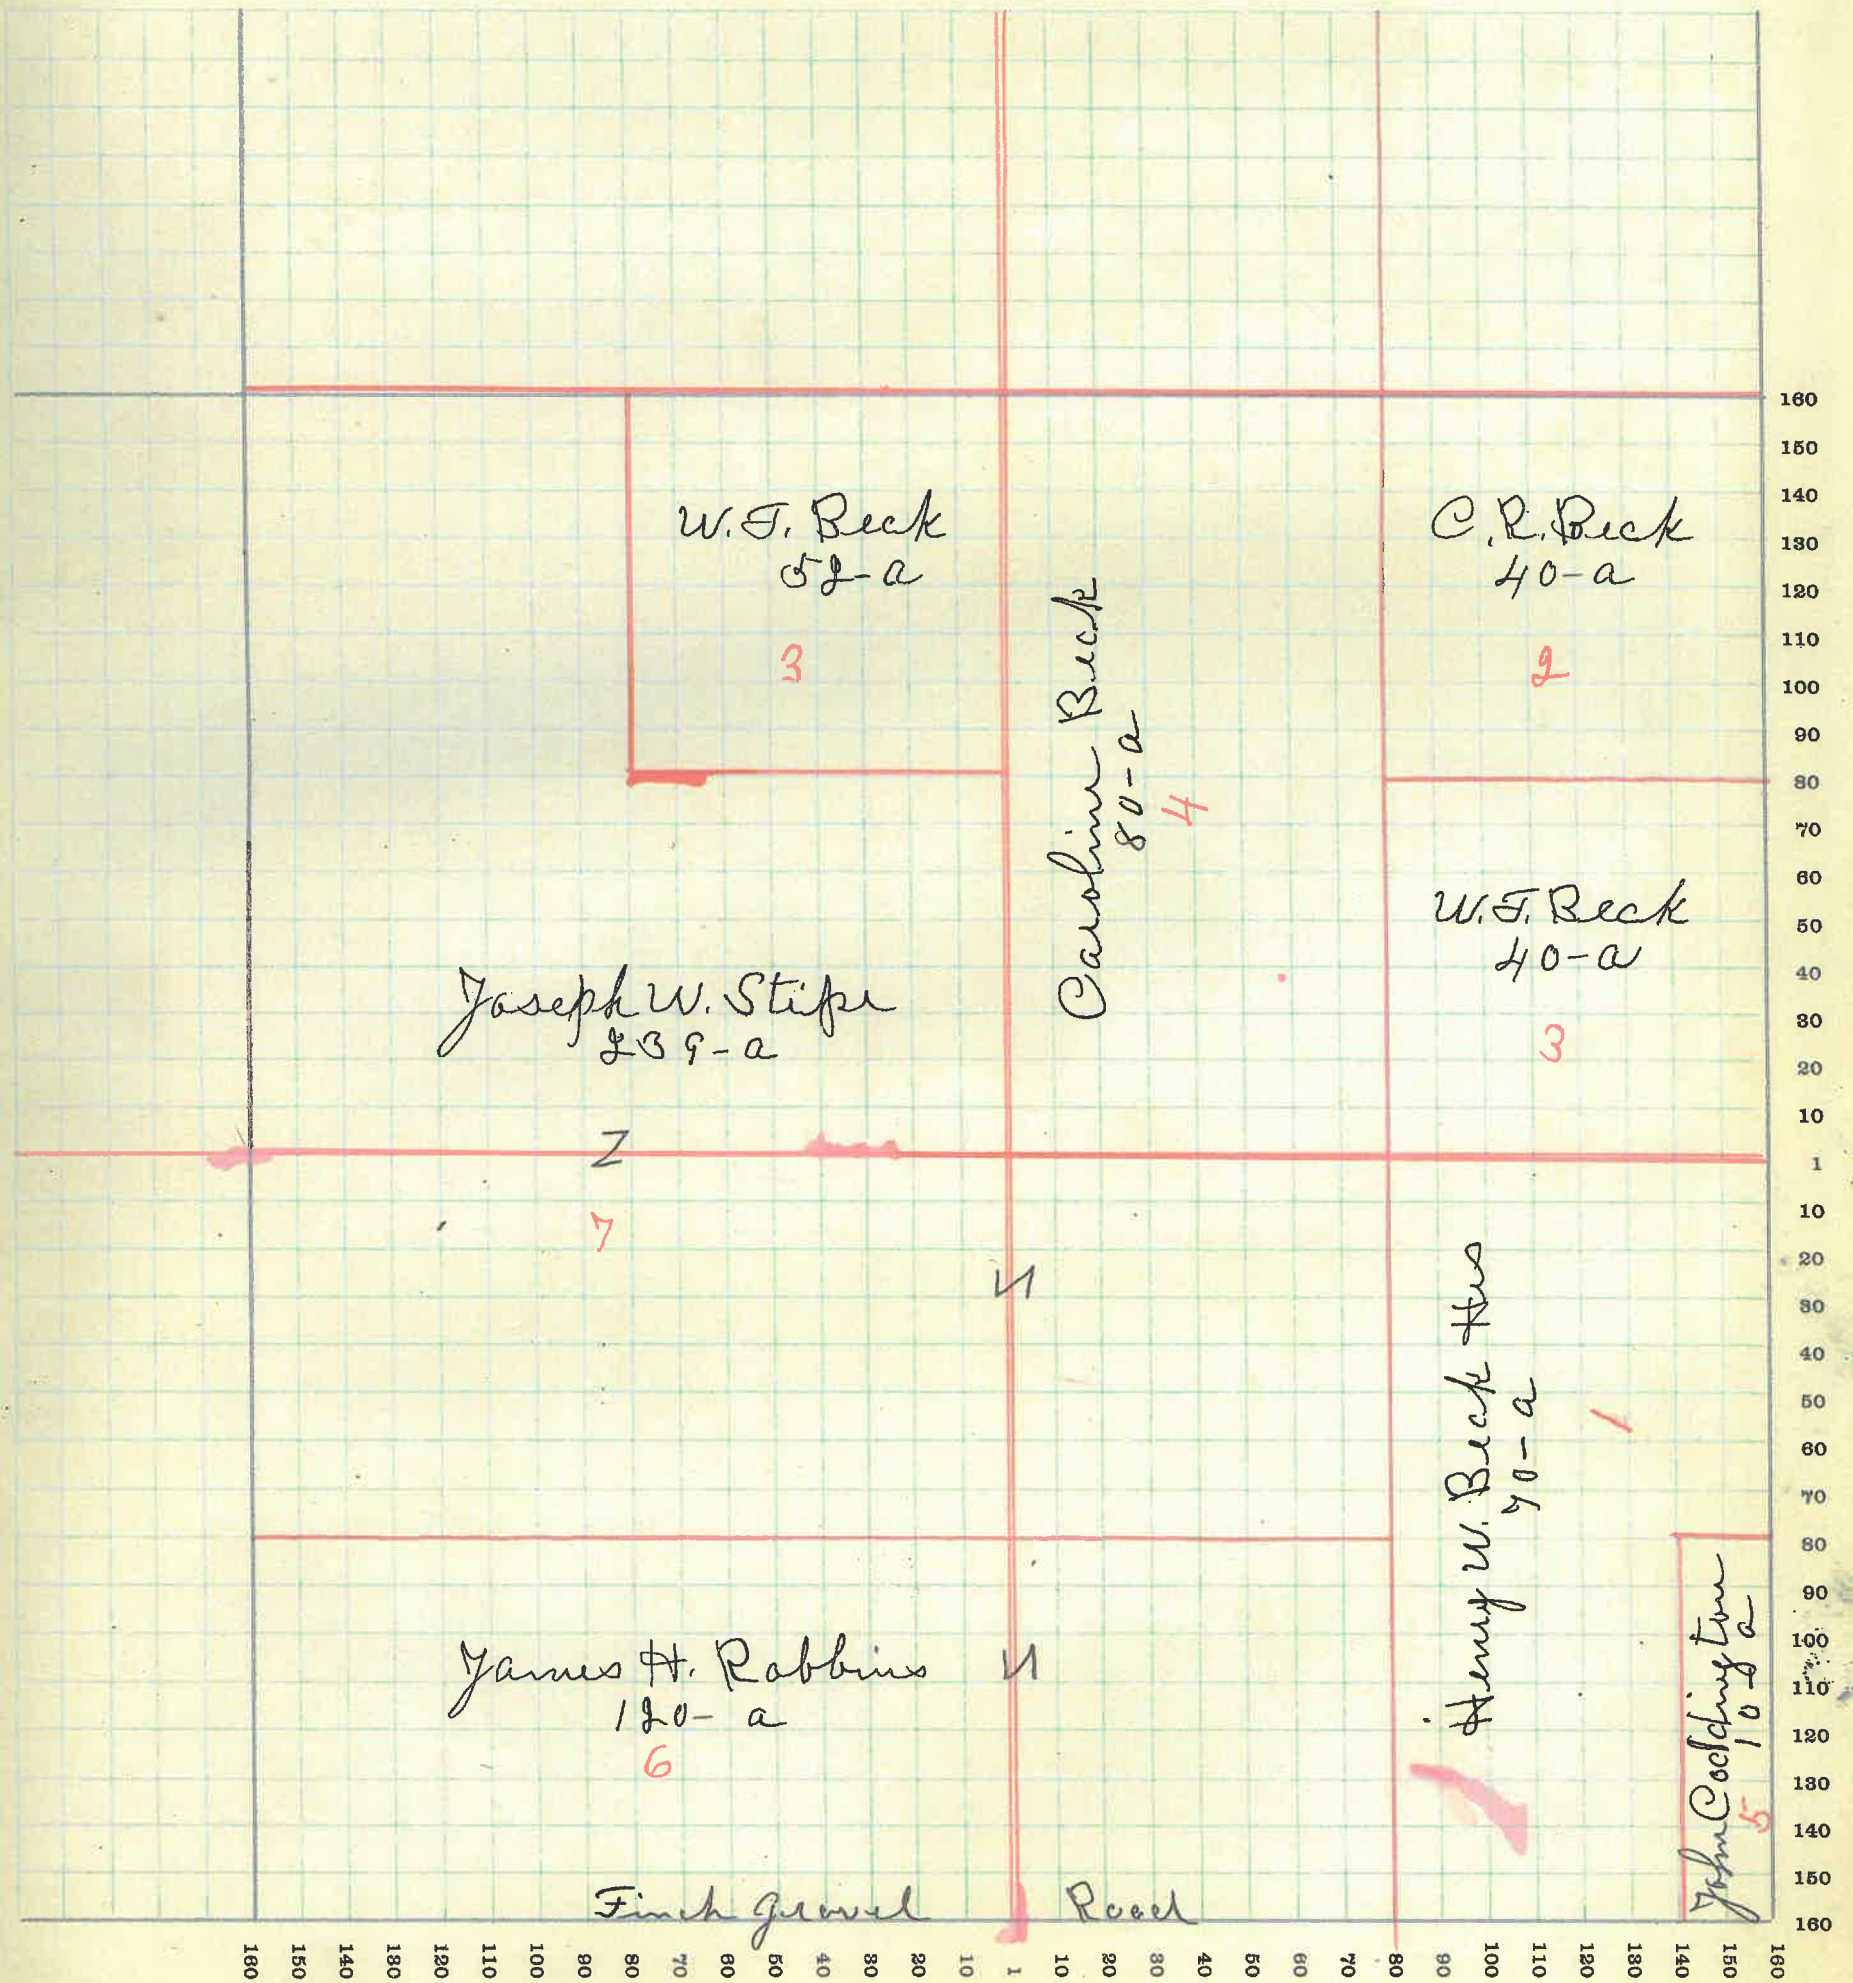 W.F. Beck
52-a
3
C.R. Beck
40-a
2
Caroline Beck
80-a
4
W.F. Beck
40-a
3
Joseph W. Stipe
239-a
Z
7
Z
Henry W. Beck Hrs
70-a
1
James H. Robbins
120- a
6
Z
John Coddington
10 - a
5
Finch Gravel Road
160
150
140
130
120
110
100
90
80
70
60
50
40
30
20
10
1
10
20
30
40
50
60
70
80
90
100
110
120
130
140
150
160
160 150 140 130 120 110 100 90 80 70 60 50 40 30 20 10 1 10 20 30 40 50 60 70 80 90 100 110 120 130 140 150 160